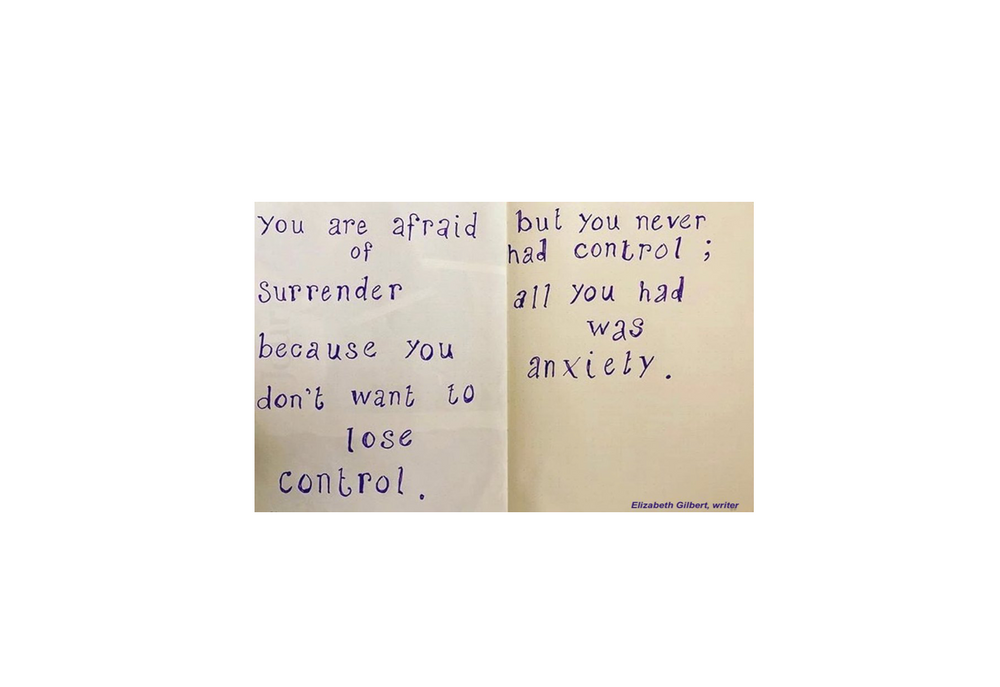 you are afraid
of
Surrender
because you
don't want to
lose
control.
but you never
had control ;
all you had
was
anxiety.
Elizabeth Gilbert, writer